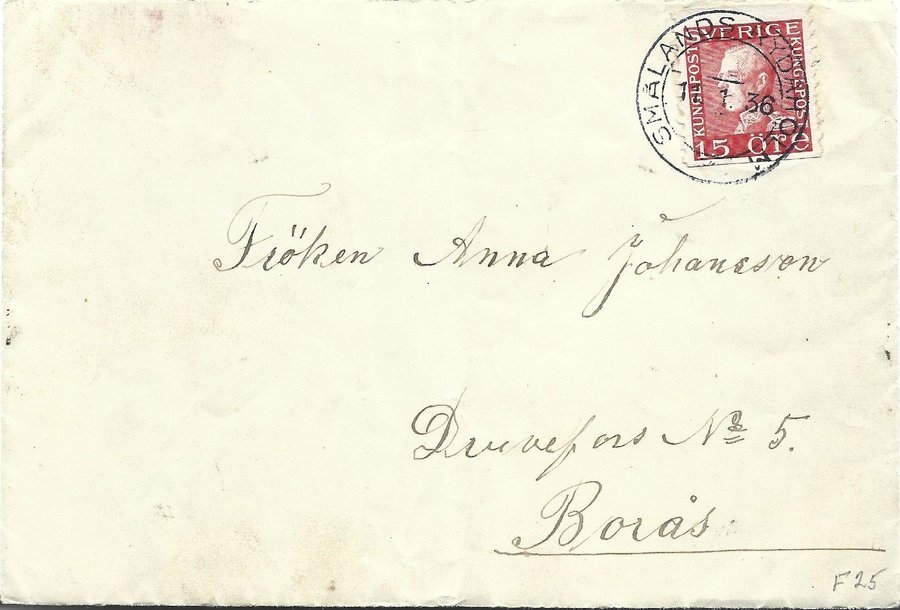 SMÅLANDS RYDAHOLM
1 36
SVERIGE
KUNGL·POST
KUNGL·POST
15 ÖRE
Fröken Anna Johansson
Druvefors No 5.
Borås
F25